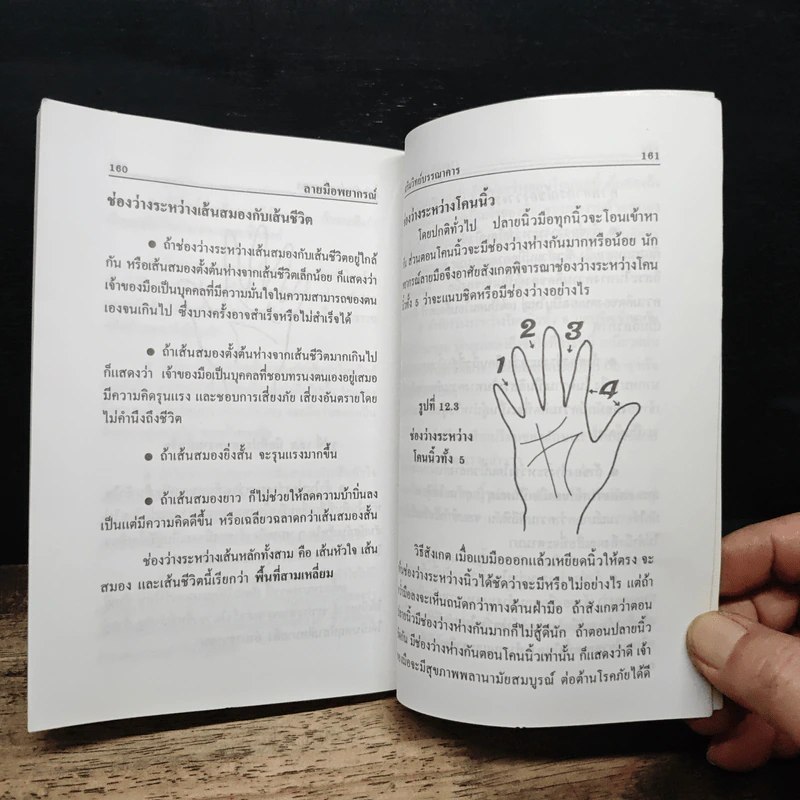 160
ลายมือพยากรณ์
ช่องว่างระหว่างเส้นสมองกับเส้นชีวิต
● ถ้าช่องว่างระหว่างเส้นสมองกับเส้นชีวิตอยู่ใกล้
กัน หรือเส้นสมองตั้งต้นห่างจากเส้นชีวิตเล็กน้อย ก็แสดงว่า
เจ้าของมือเป็นบุคคลที่มีความมั่นใจในความสามารถของตน
เองจนเกินไป ซึ่งบางครั้งอาจสำเร็จหรือไม่สำเร็จได้
● ถ้าเส้นสมองตั้งต้นห่างจากเส้นชีวิตมากเกินไป
ก็แสดงว่า เจ้าของมือเป็นบุคคลที่ชอบทรนงตนเองอยู่เสมอ
มีความคิดรุนแรง และชอบการเสี่ยงภัย เสี่ยงอันตรายโดย
ไม่คำนึงถึงชีวิต
● ถ้าเส้นสมองยิ่งสั้น จะรุนแรงมากขึ้น
● ถ้าเส้นสมองยาว ก็ไม่ช่วยให้ลดความบ้าบิ่นลง
เป็นแต่มีความคิดดีขึ้น หรือเฉลียวฉลาดกว่าเส้นสมองสั้น
ช่องว่างระหว่างเส้นหลักทั้งสาม คือ เส้นหัวใจ เส้น
สมอง และเส้นชีวิตนี้เรียกว่า พื้นที่สามเหลี่ยม
161
บรรณาคาร
ช่องว่างระหว่างโคนนิ้ว
โดยปกติทั่วไป ปลายนิ้วมือทุกนิ้วจะโอนเข้าหา
ส่วนตอนโคนนิ้วจะมีช่องว่างห่างกันมากหรือน้อย นัก
พยากรณ์ลายมือจึงอาศัยสังเกตพิจารณาช่องว่างระหว่างโคน
นิ้วทั้ง 5 ว่าจะแนบชิดหรือมีช่องว่างอย่างไร
1
2
3
4
รูปที่ 12.3
ช่องว่างระหว่าง
โคนนิ้วทั้ง 5
วิธีสังเกต เมื่อแบมือออกแล้วเหยียดนิ้วให้ตรง จะ
เห็นช่องว่างระหว่างนิ้วได้ชัดว่าจะมีหรือไม่อย่างไร แต่ถ้า
คว่ำมือลงจะเห็นถนัดกว่าทางด้านฝ่ามือ ถ้าสังเกตว่าตอน
ปลายนิ้วมีช่องว่างห่างกันมากก็ไม่สู้ดีนัก ถ้าตอนปลายนิ้ว
มีช่องว่างห่างกันตอนโคนนิ้วเท่านั้น ก็แสดงว่าดี เจ้า
ของมือจะมีสุขภาพพลานามัยสมบูรณ์ ต่อต้านโรคภัยได้ดี